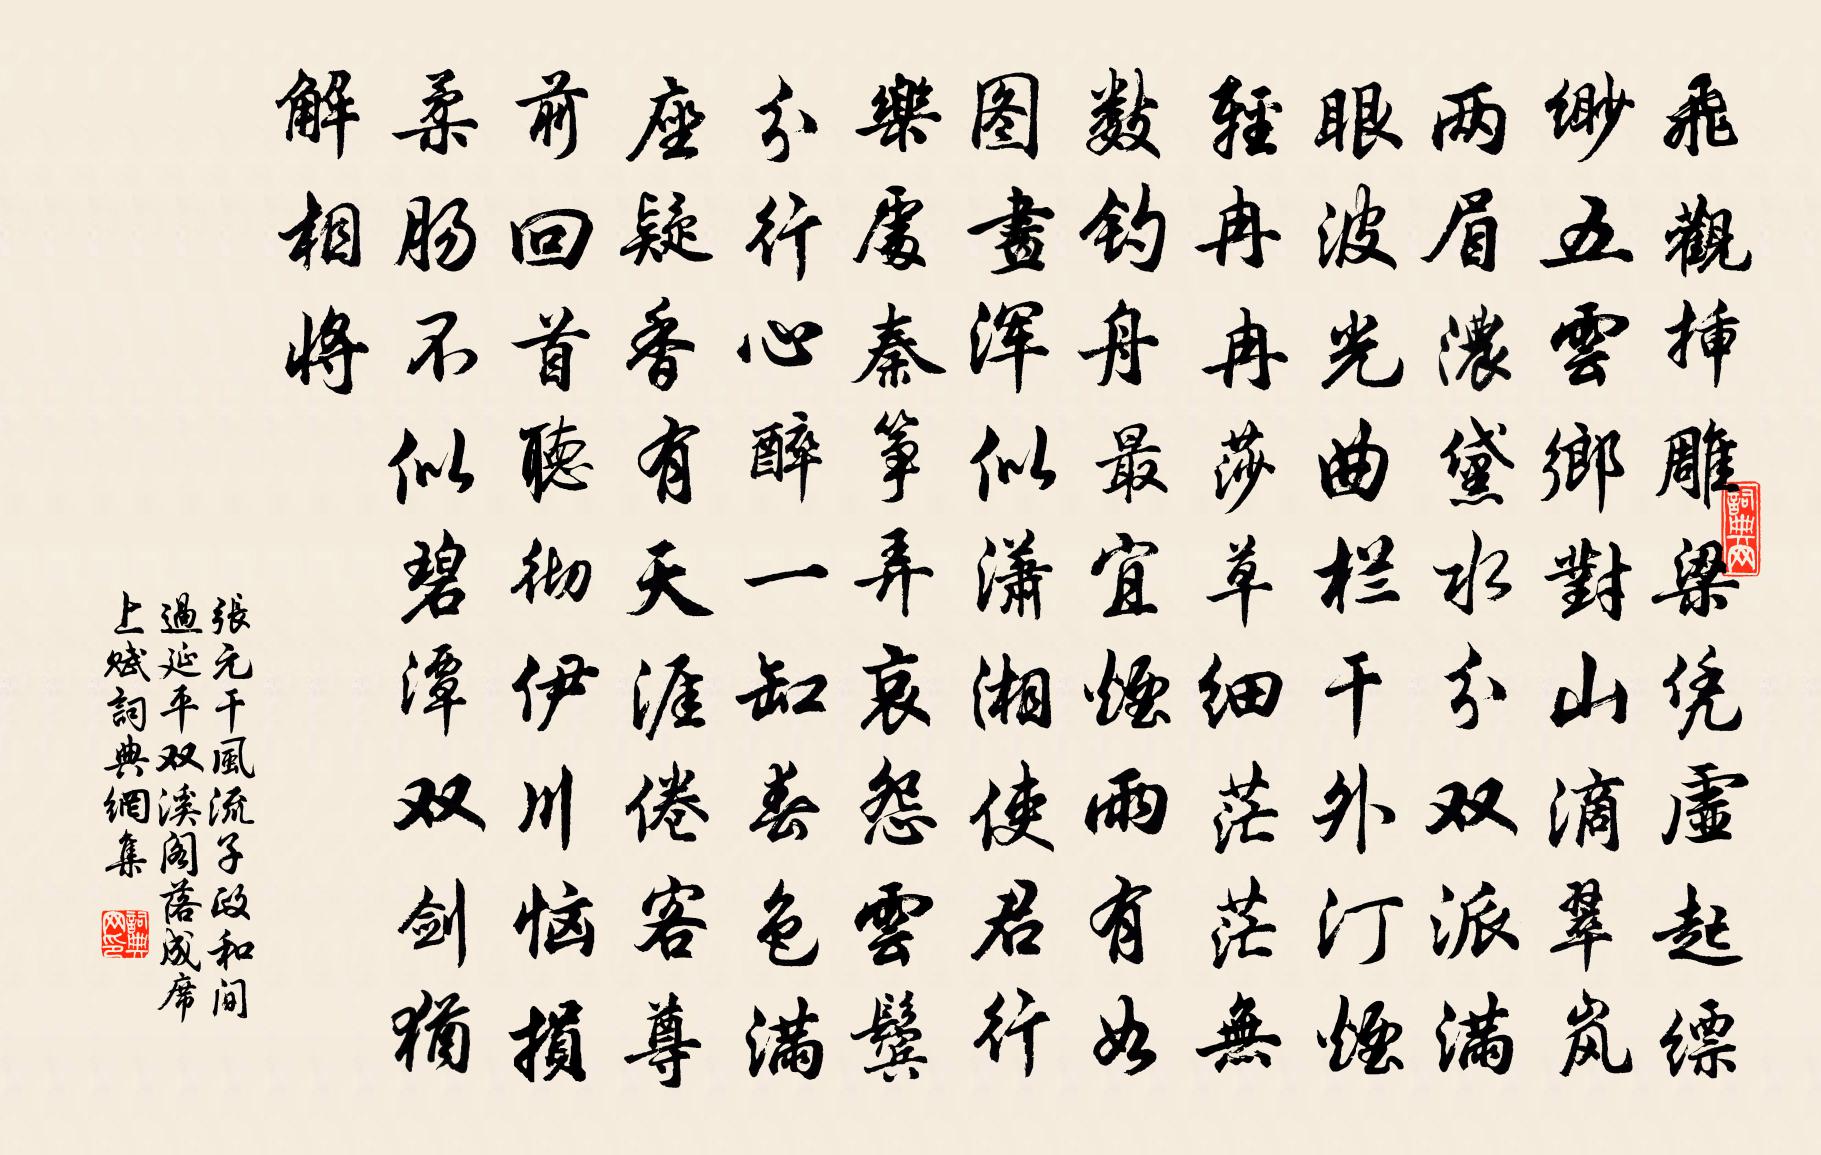 飛觀插雕梁凭虛起缥
缈五雲鄉對山滴翠岚
两眉濃黛水分双派满
眼波光曲栏干外汀煙
輕冉冉莎草细茫茫無
數钓舟最宜煙雨有如
图畫浑似潇湘使君行
樂處秦筝弄哀怨雲鬓
分行心醉一缸春色满
座疑香有天涯倦客尊
前回首聽彻伊川恼損
柔肠不似碧潭双剑猶
解相将
張元干風流子政和间
過延平双溪阁落成席
上赋詞典網集
詞典网
詞典网印